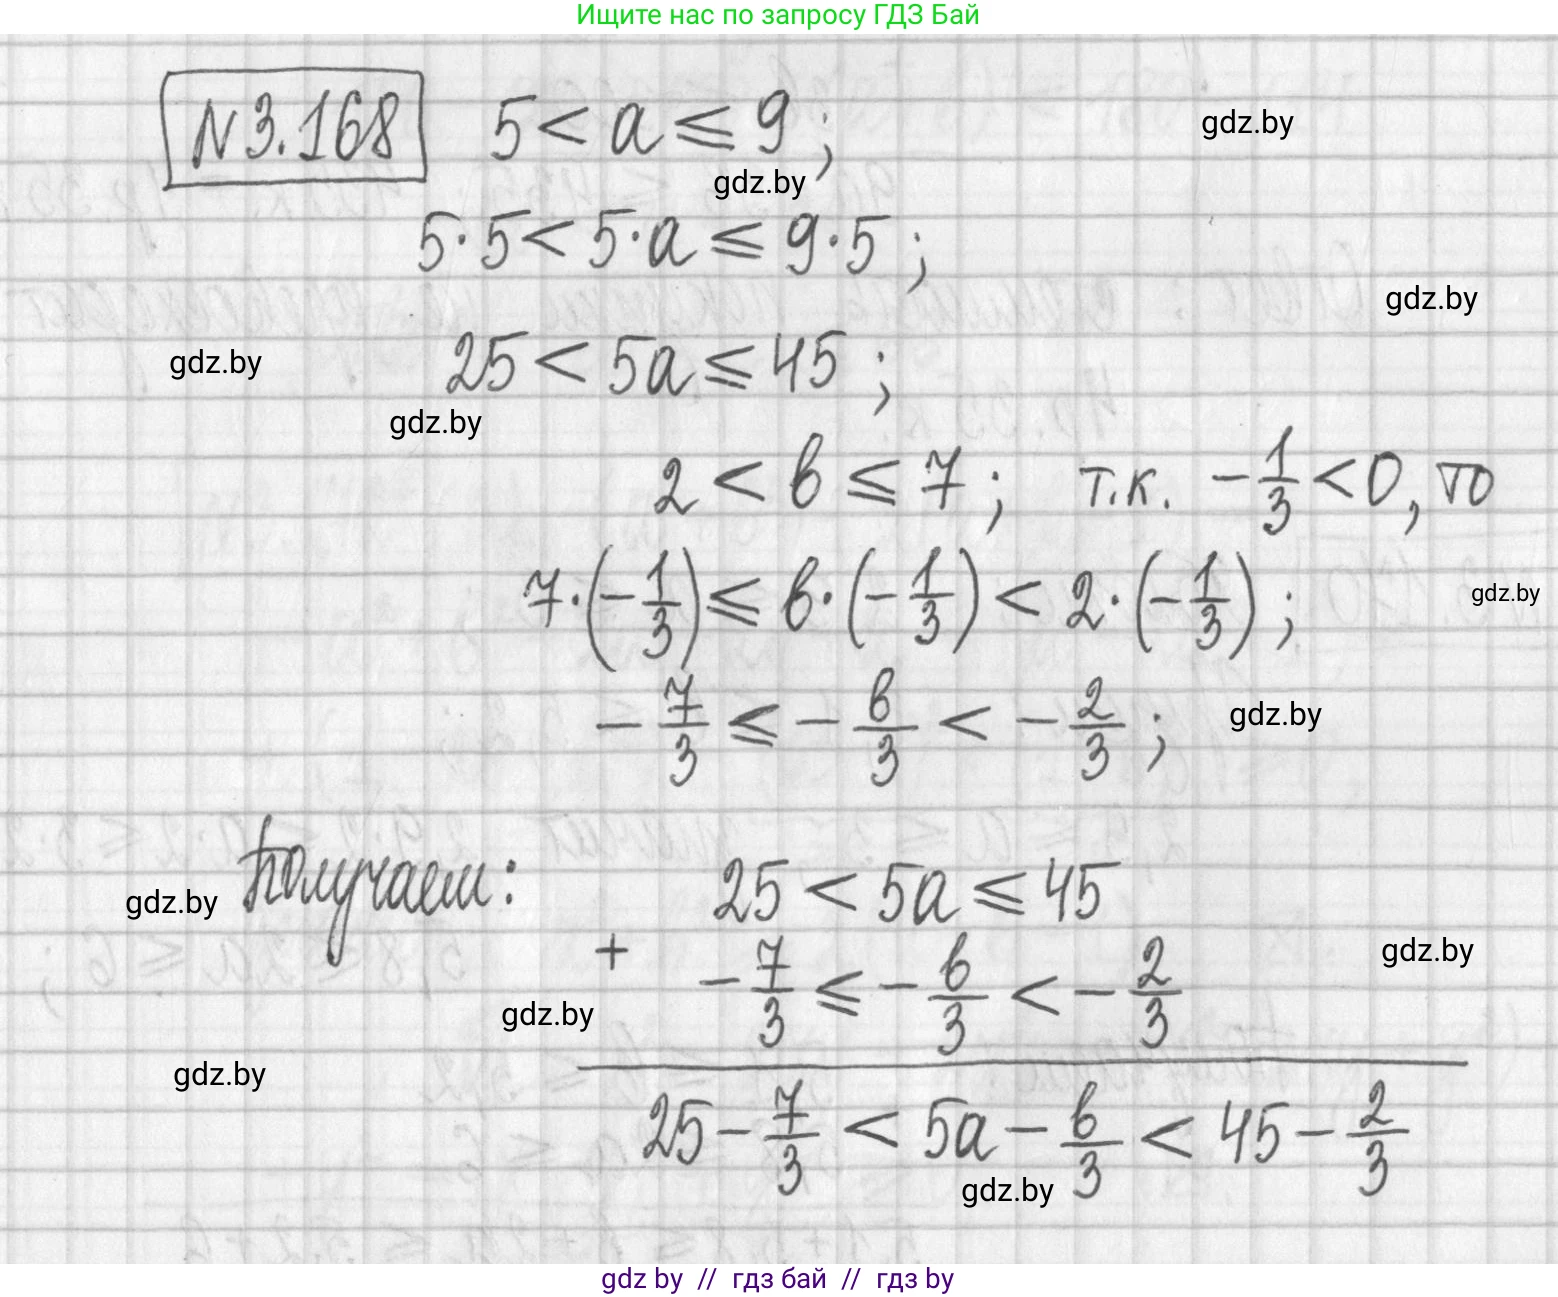 Ищите нас по запросу ГДЗ Бай
N 3.168 5 < a ≤ 9 ;
gdz.by
gdz.by
5·5 < 5·a ≤ 9·5 ;
gdz.by
25 < 5a ≤ 45 ;
gdz.by
gdz.by
2 < в ≤ 7 ; т.к. -1/3 < 0, то
7·(-1/3) ≤ в·(-1/3) < 2·(-1/3) ;
gdz.by
-7/3 ≤ -в/3 < -2/3 ;
gdz.by
Получаем: 25 < 5a ≤ 45
gdz.by
+ -7/3 ≤ -в/3 < -2/3
gdz.by
gdz.by
gdz.by
25 - 7/3 < 5a - в/3 < 45 - 2/3
gdz.by
gdz by // гдз бай // гдз by